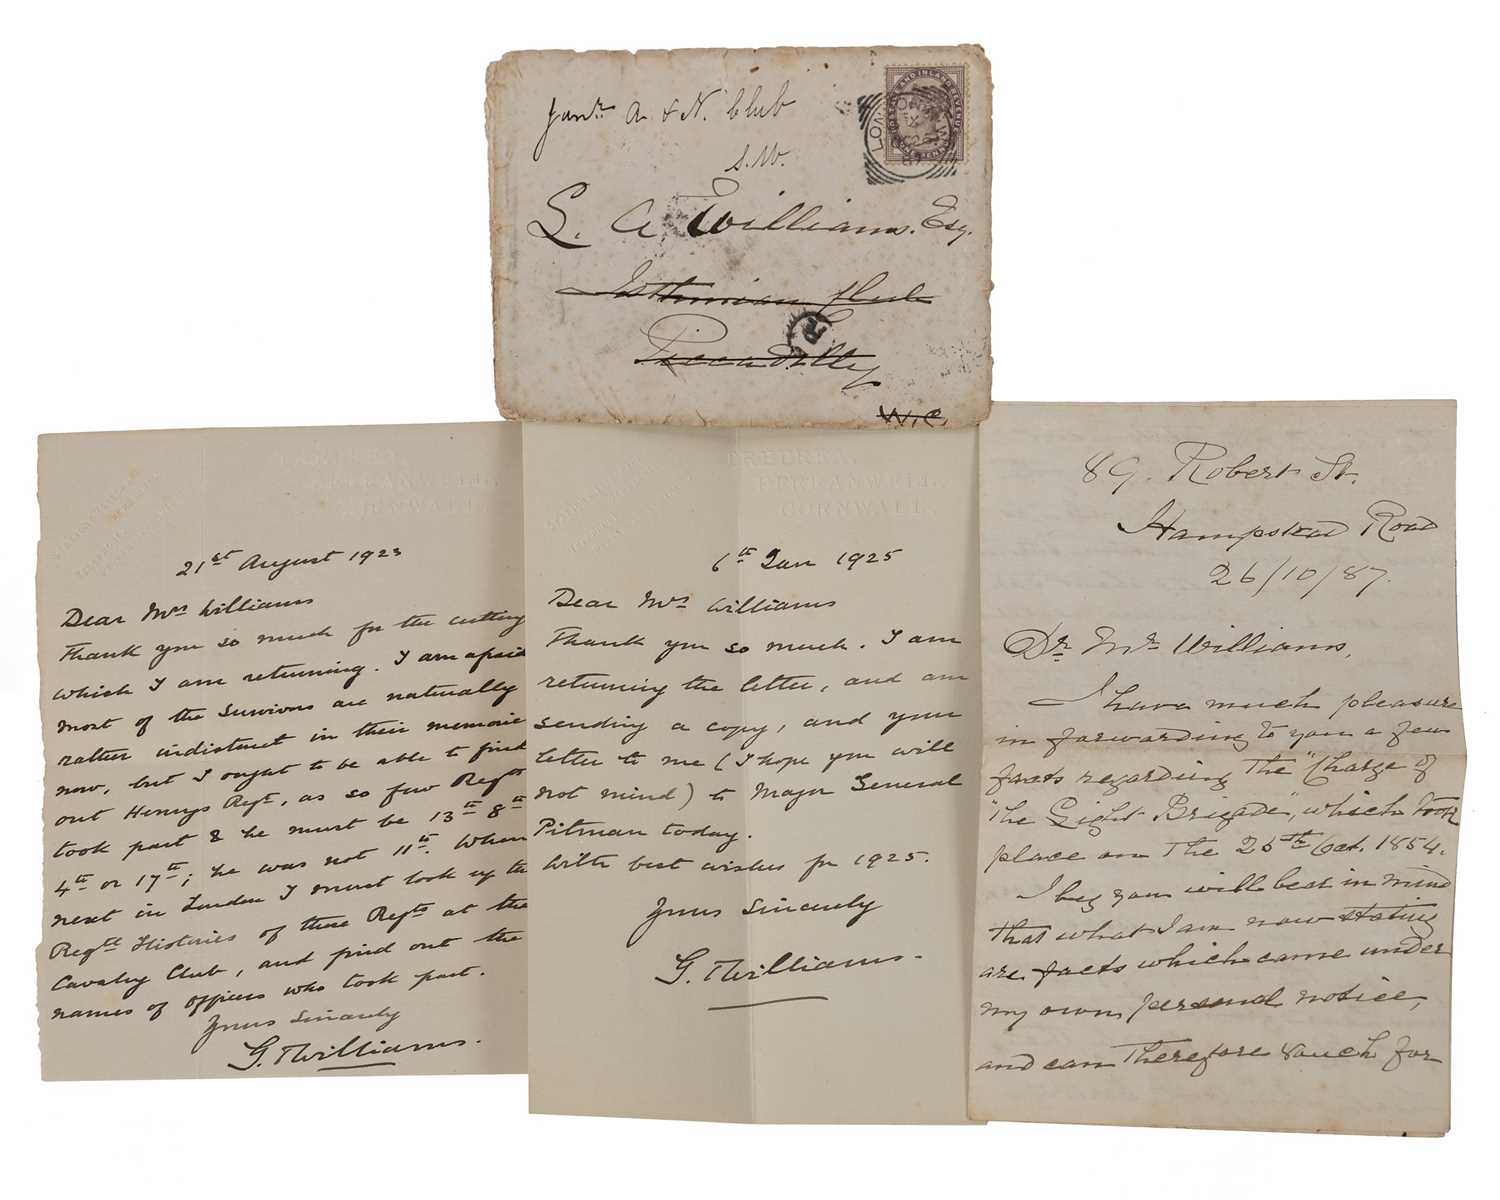 Junr. A. & N. Club
S.W.
L. A. Williams. Esq.
Isthmian Club
Piccadilly
W.C.
R
POSTAGE AND INLAND REVENUE
LONDON
PERRANWELL,
CORNWALL.
21st August 1923
Dear Mrs Williams
Thank you so much for the cutting
which I am returning. I am afraid
most of the survivors are naturally
rather indistinct in their memories
now, but I ought to be able to find
out Henrys Regt, as so few Regts
took part & he must be 13th 8th
4th or 17th; he was not 11th. When
next in London I must look up the
Regtl Histories of these Regts at the
Cavalry Club, and find out the
names of officers who took part.
Yours sincerely
G. T Williams.
TREDREA,
PERRANWELL,
CORNWALL.
6th Jan 1925
Dear Mrs Williams
Thank you so much. I am
returning the letter, and am
sending a copy, and your
letter to me (I hope you will
not mind) to Major General
Pitman today.
With best wishes for 1925.
Yours sincerely
G. T Williams.
89. Robert St.
Hampstead Road
26/10/87.
Dr. Mr. Williams,
I have much pleasure
in forwarding to you a few
facts regarding the "Charge of
"the Light Brigade", which took
place on the 25th Oct. 1854.
I beg you will bear in mind
that what I am now stating
are facts which came under
my own personal notice,
and can therefore vouch for